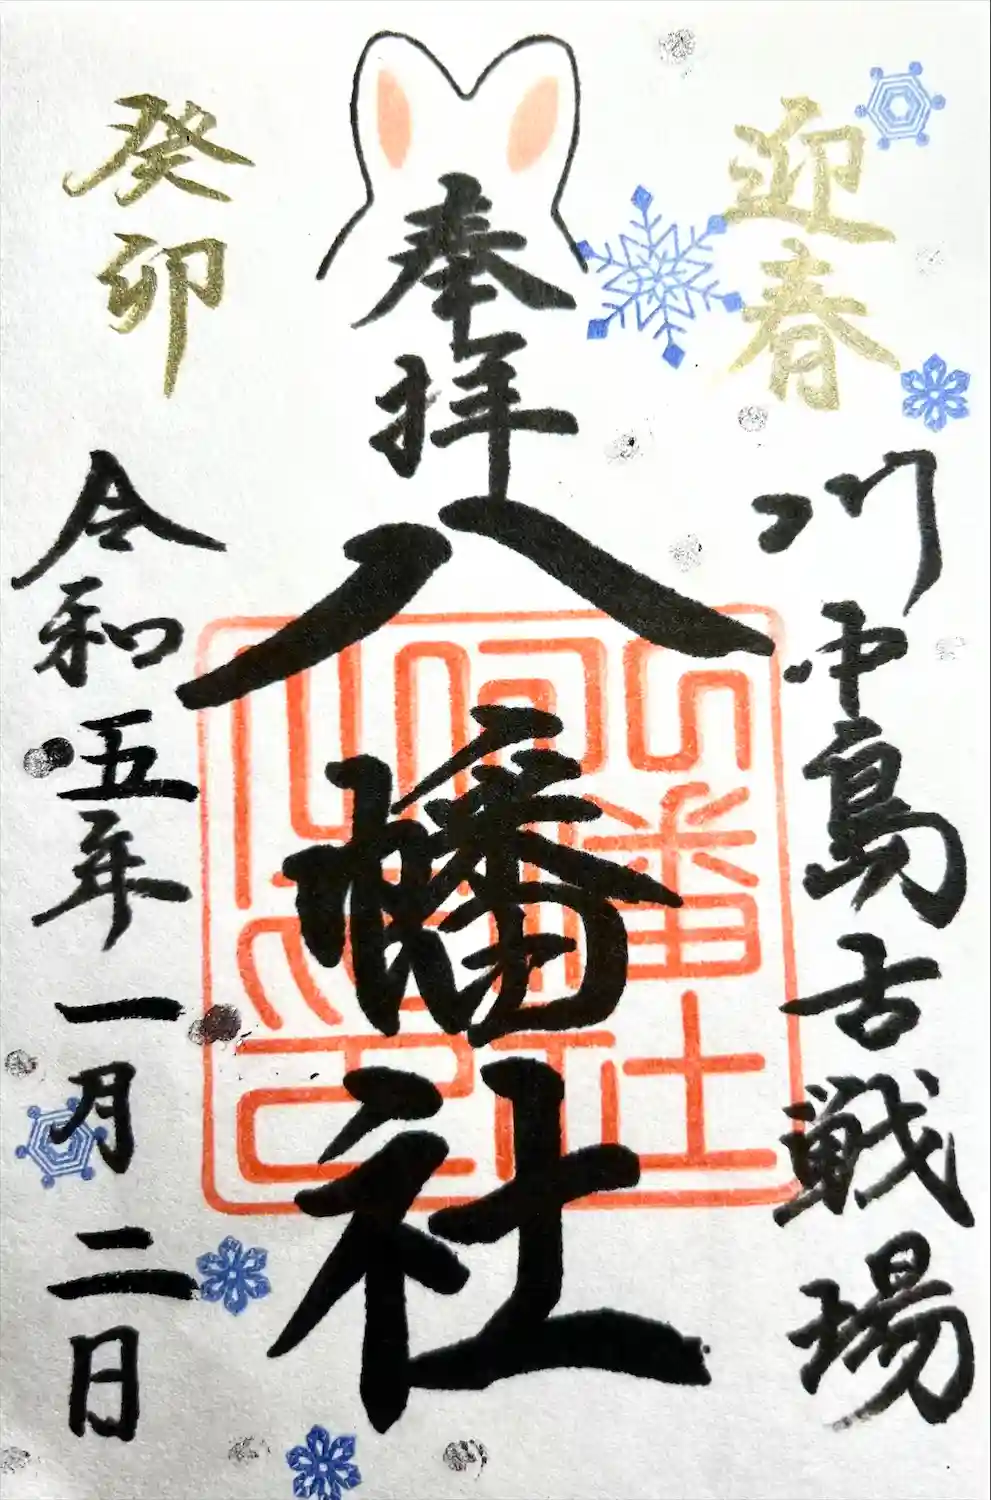 迎春
川中島古戦場
奉拝
八幡社
癸卯
令和五年一月二日